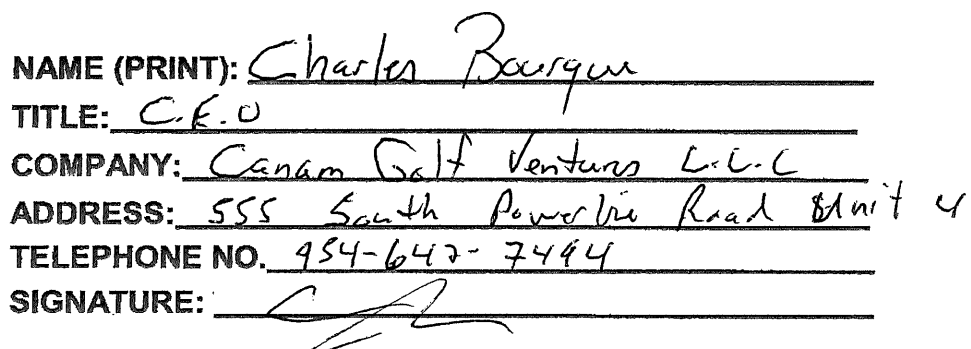 NAME (PRINT): Charles
TITLE: C.E.O
COMPANY: Canam Golf Ventures L.L.C
ADDRESS: 555 South Powerline Road Unit 4
TELEPHONE NO. 954-642-7494
SIGNATURE: